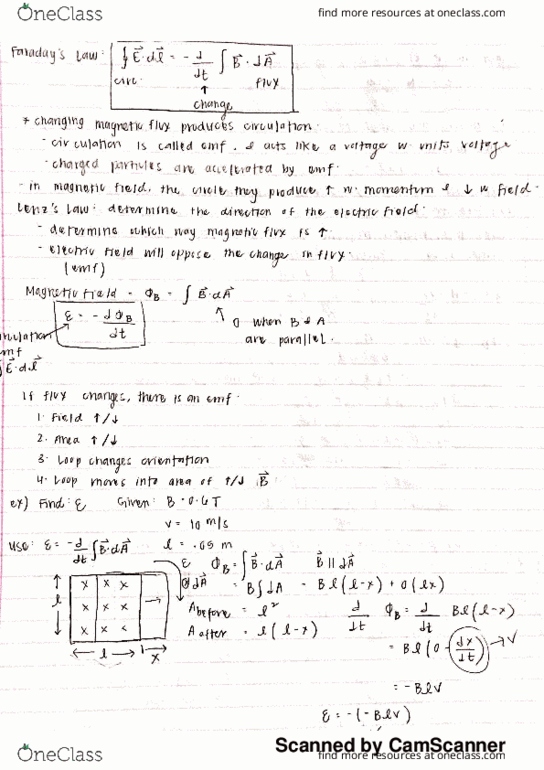 OneClass
find more resources at oneclass.com
Faraday's Law: ∮ E⃗·dl⃗ = -d/dt ∫ B⃗·dA⃗
circ. ↑ flux
change
* changing magnetic flux produces circulation
- circulation is called emf. & acts like a voltage w. units voltage
- charged particles are accelerated by emf.
- in magnetic field, the circle they produce ↑ w. momentum & ↓ w field.
Lenz's Law: determine the direction of the electric field.
- determine which way magnetic flux is ↑
- electric field will oppose the change in flux.
(emf)
Magnetic Field = Φ_B = ∫ B⃗·dA⃗
ε = -dΦ_B/dt
0 when B & A
are parallel.
E⃗·dl⃗
If flux changes, there is an emf.
1. Field ↑/↓
2. Area ↑/↓
3. Loop changes orientation
4. Loop moves into area of ↑/↓ B⃗
ex) Find: ε Given: B = 0.6T
v = 10 m/s
use: ε = -d/dt ∫ B⃗·dA⃗ l = .05 m
ε Φ_B = ∫ B⃗·dA⃗ B⃗ || dA⃗
dA⃗ = B∫dA = Bl(l-x) + 0(lx)
A before = l²
A after = l(l-x)
d/dt Φ_B = d/dt Bl(l-x)
= Bl(0 - dx/dt) → v
= -Blv
ε = -(-Blv)
x x x
x x x
x x x
l
l x
Scanned by CamScanner
OneClass
find more resources at oneclass.com